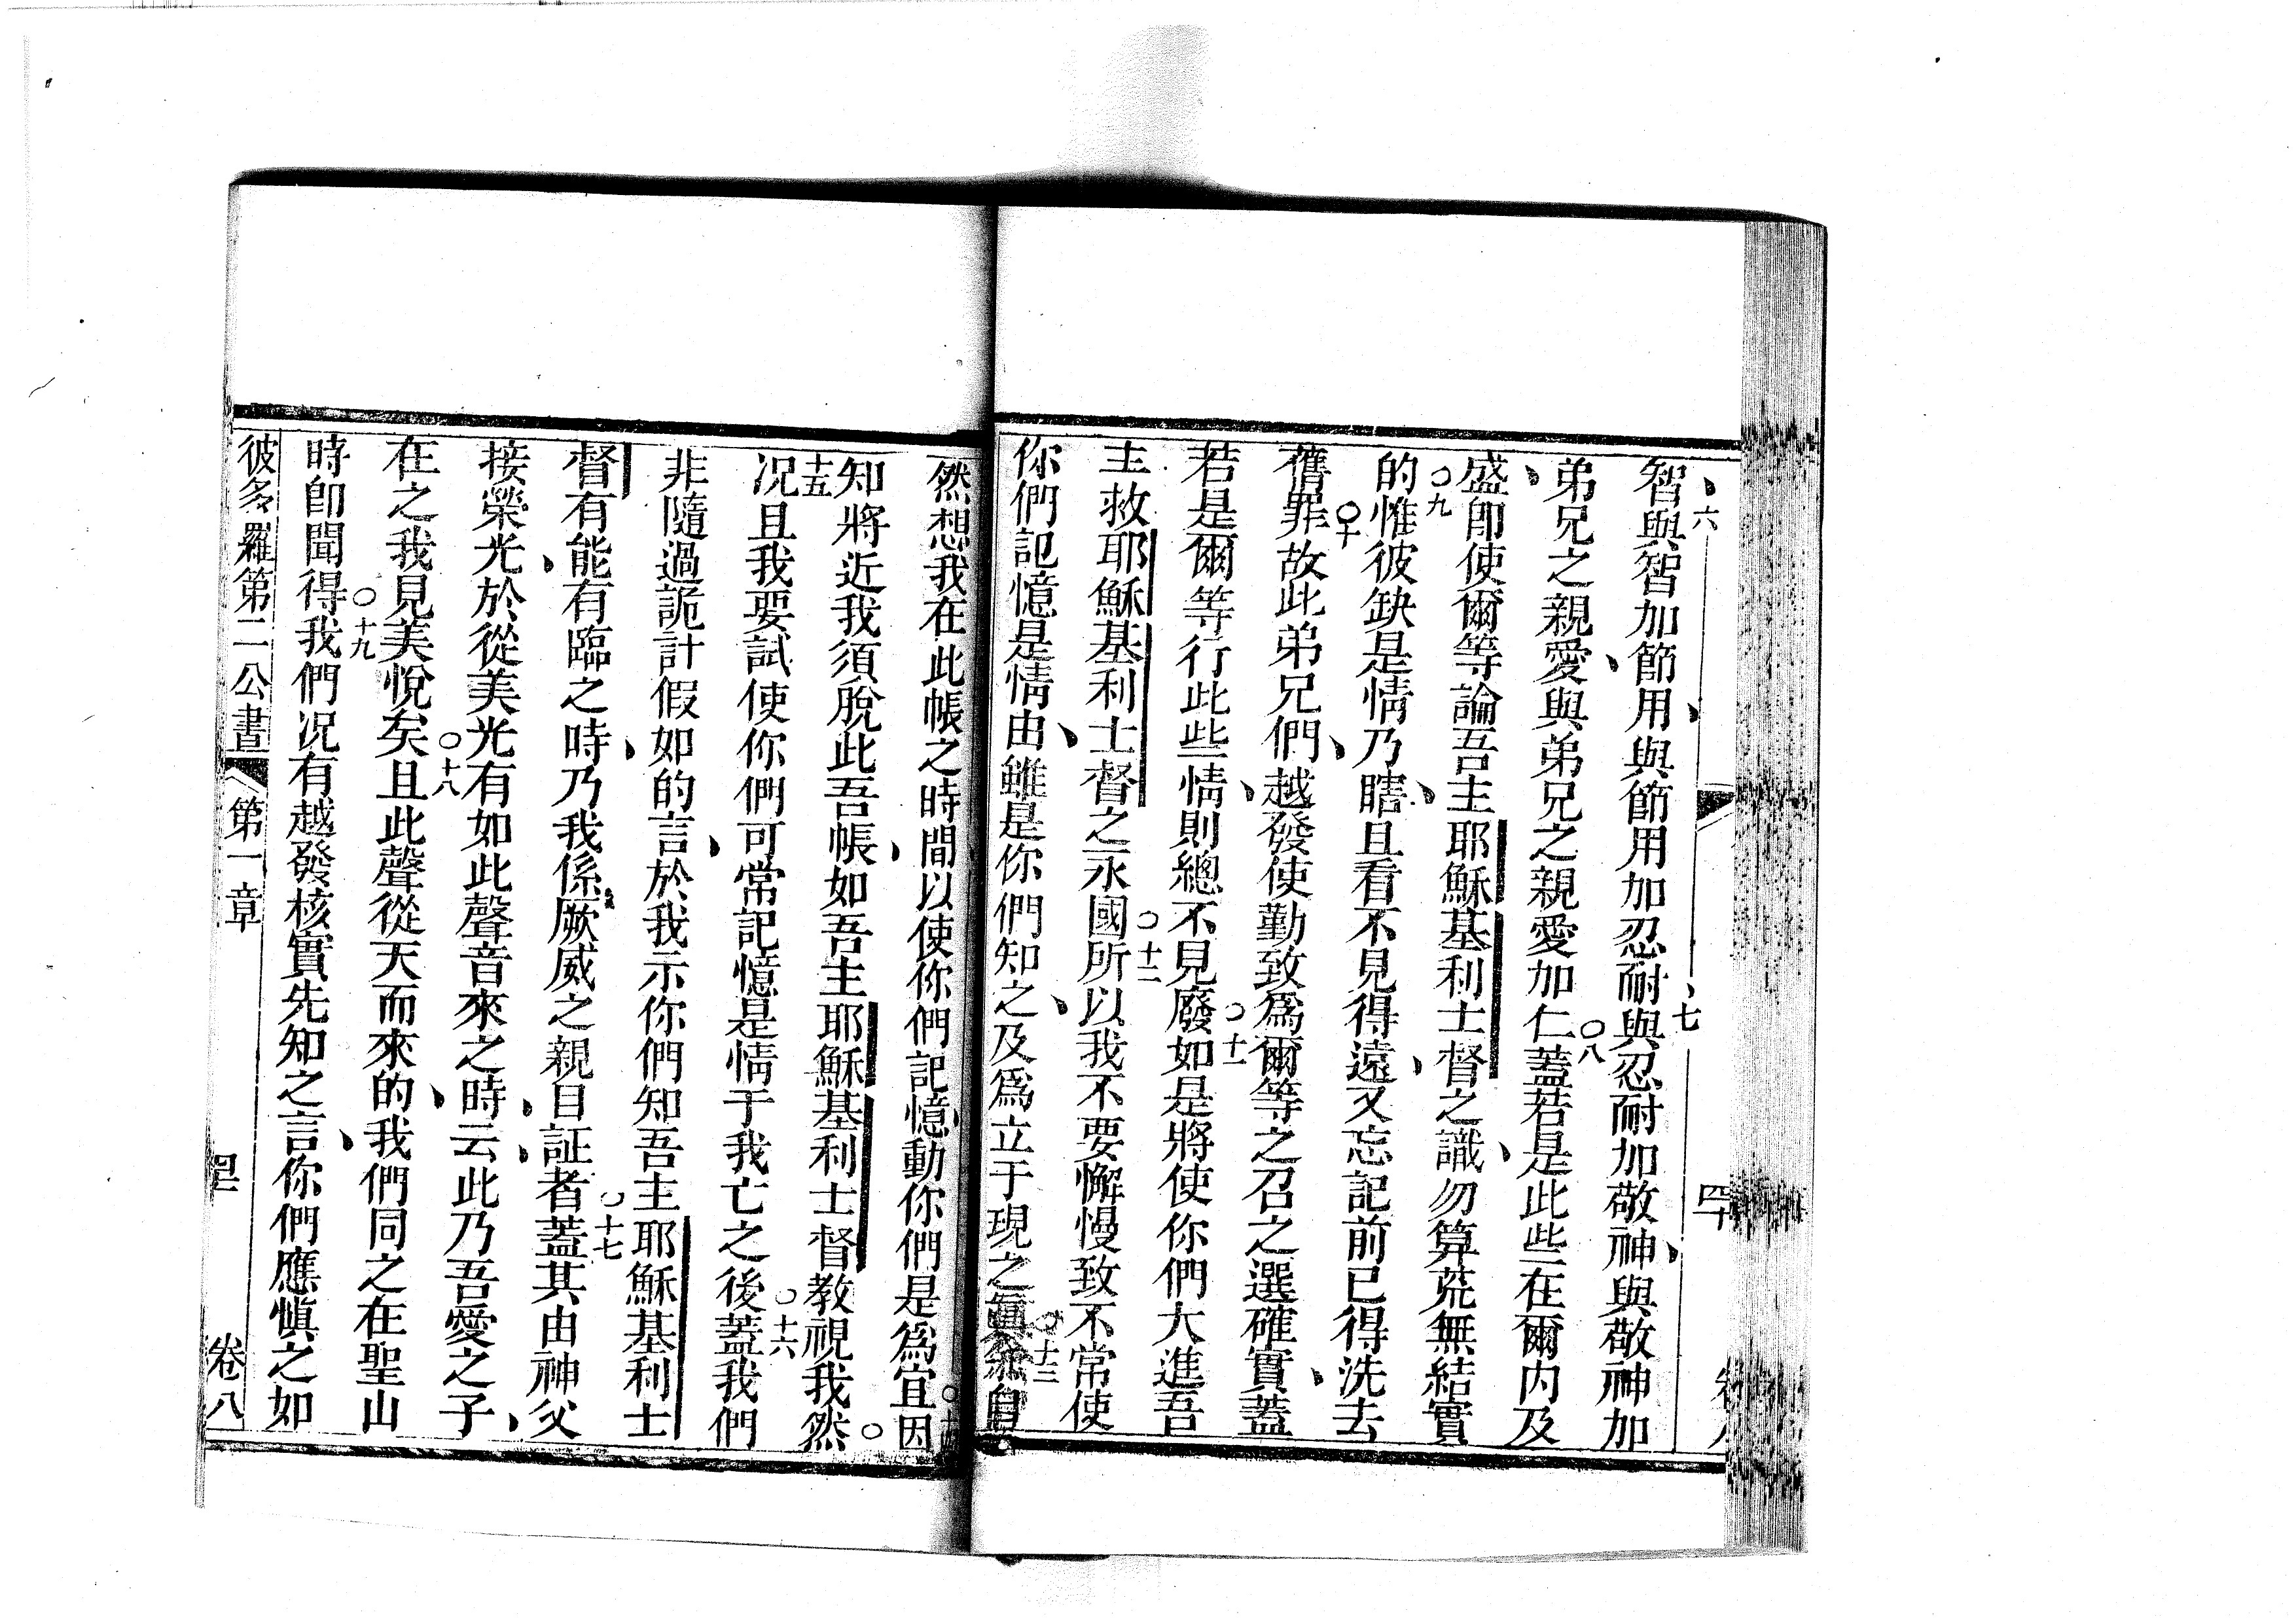 六 七 四十
智與智加節用、與節用加忍耐與忍耐加敬神、與敬神加
弟兄之親愛、與弟兄之親愛加仁○八蓋若是此些在爾内及
盛、卽使爾等論吾主耶穌基利士督之識、勿算荒無結實
的○九惟彼缺是情乃瞎、且看不見得遠、又忘記前已得洗去
舊罪○十故此弟兄們、越發使勤致爲爾等之召之選確實、蓋
若是爾等行此些情、則總不見廢○十一如是將使你們大進吾
主救耶穌基利士督之永國○十二所以我不要懈慢致不常使
你們記憶是情、由雖是你們知之、及爲立于現之眞○十三
然想我在此帳之時間以使你們記憶動你們是爲宜○十四因
知將近我須脫此吾帳、如吾主耶穌基利士督教視我然○
十五況且我要試使你們可常記憶是情于我亡之後○十六蓋我們
非隨過詭計假如的言、於我示你們知吾主耶穌基利士
督有能有臨之時、乃我係厥威之親目証者○十七蓋其由神父
接榮光、於從美光有如此聲音來之時、云、此乃吾愛之子、
在之我見美悅矣○十八且此聲從天而來的、我們同之在聖山
時卽聞得○十九我們況有越發核實先知之言、你們應愼之如
彼多羅第二公書 第一章 四十一 卷八